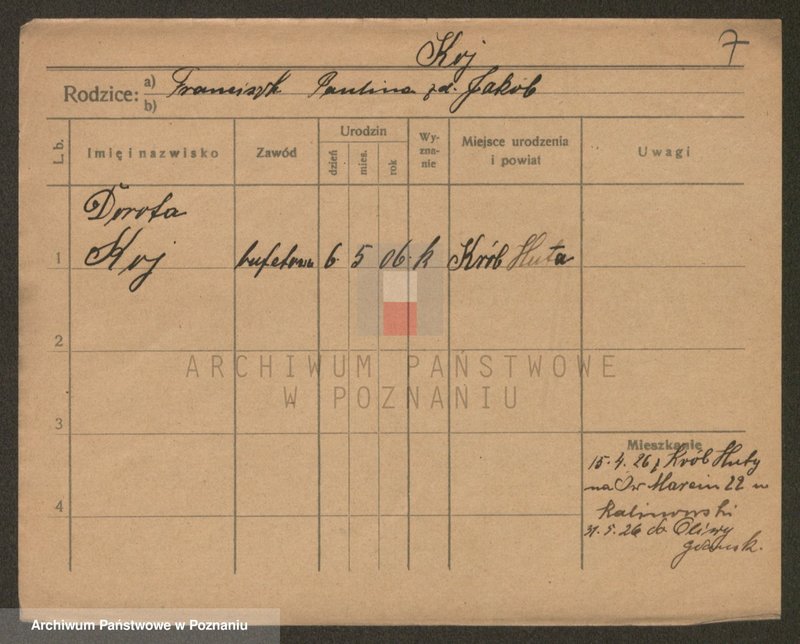 Koj
7
Rodzice: a) Franciszk Paulina zd. Jakób
b)
L. b.
Imię i nazwisko
Zawód
Urodzin
dzień
mies.
rok
Wy-
zna-
nie
Miejsce urodzenia
i powiat
Uwagi
Dorota
1 Koj bufetowa 6 5 06 k Król Huta
2
ARCHIWUM PAŃSTWOWE
W POZNANIU
3
Mieszkanie
15.4.26 z Król Huty
na Św Marcin 22 u
Kalinowski
31.5.26 do Oliwy
Gdańsk.
4
Archiwum Państwowe w Poznaniu